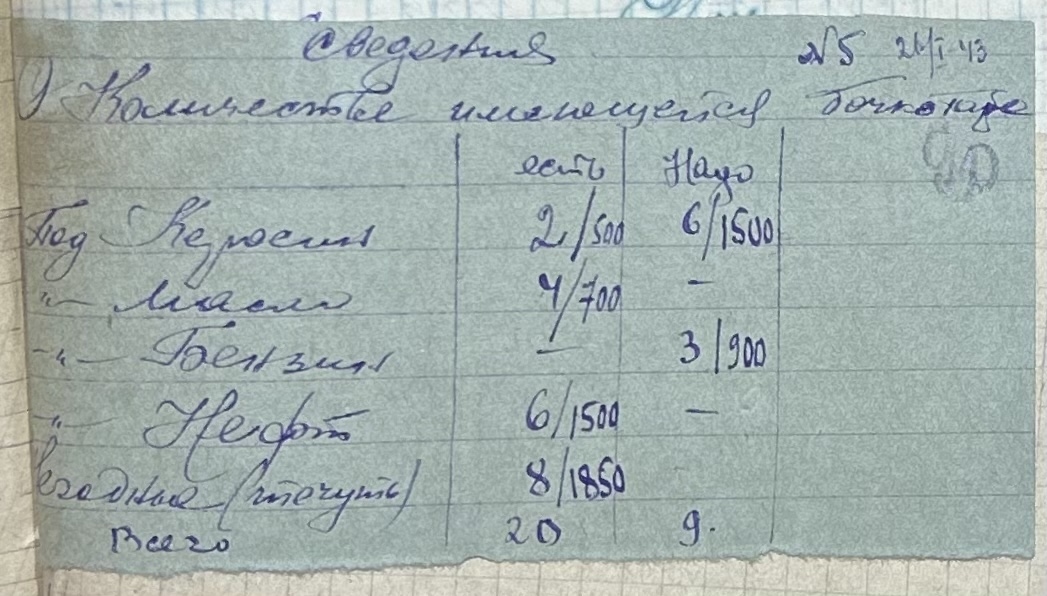 Сведения №5 26/I-43
О Количестве имеющейся бочкотаре
есть Надо
Под Керосин 2/500 6/1500
-"- Масло 4/700 -
-"- Бензин - 3/900
-"- Нефть 6/1500 -
егодные (текуть) 8/1850 -
Всего 20 9.